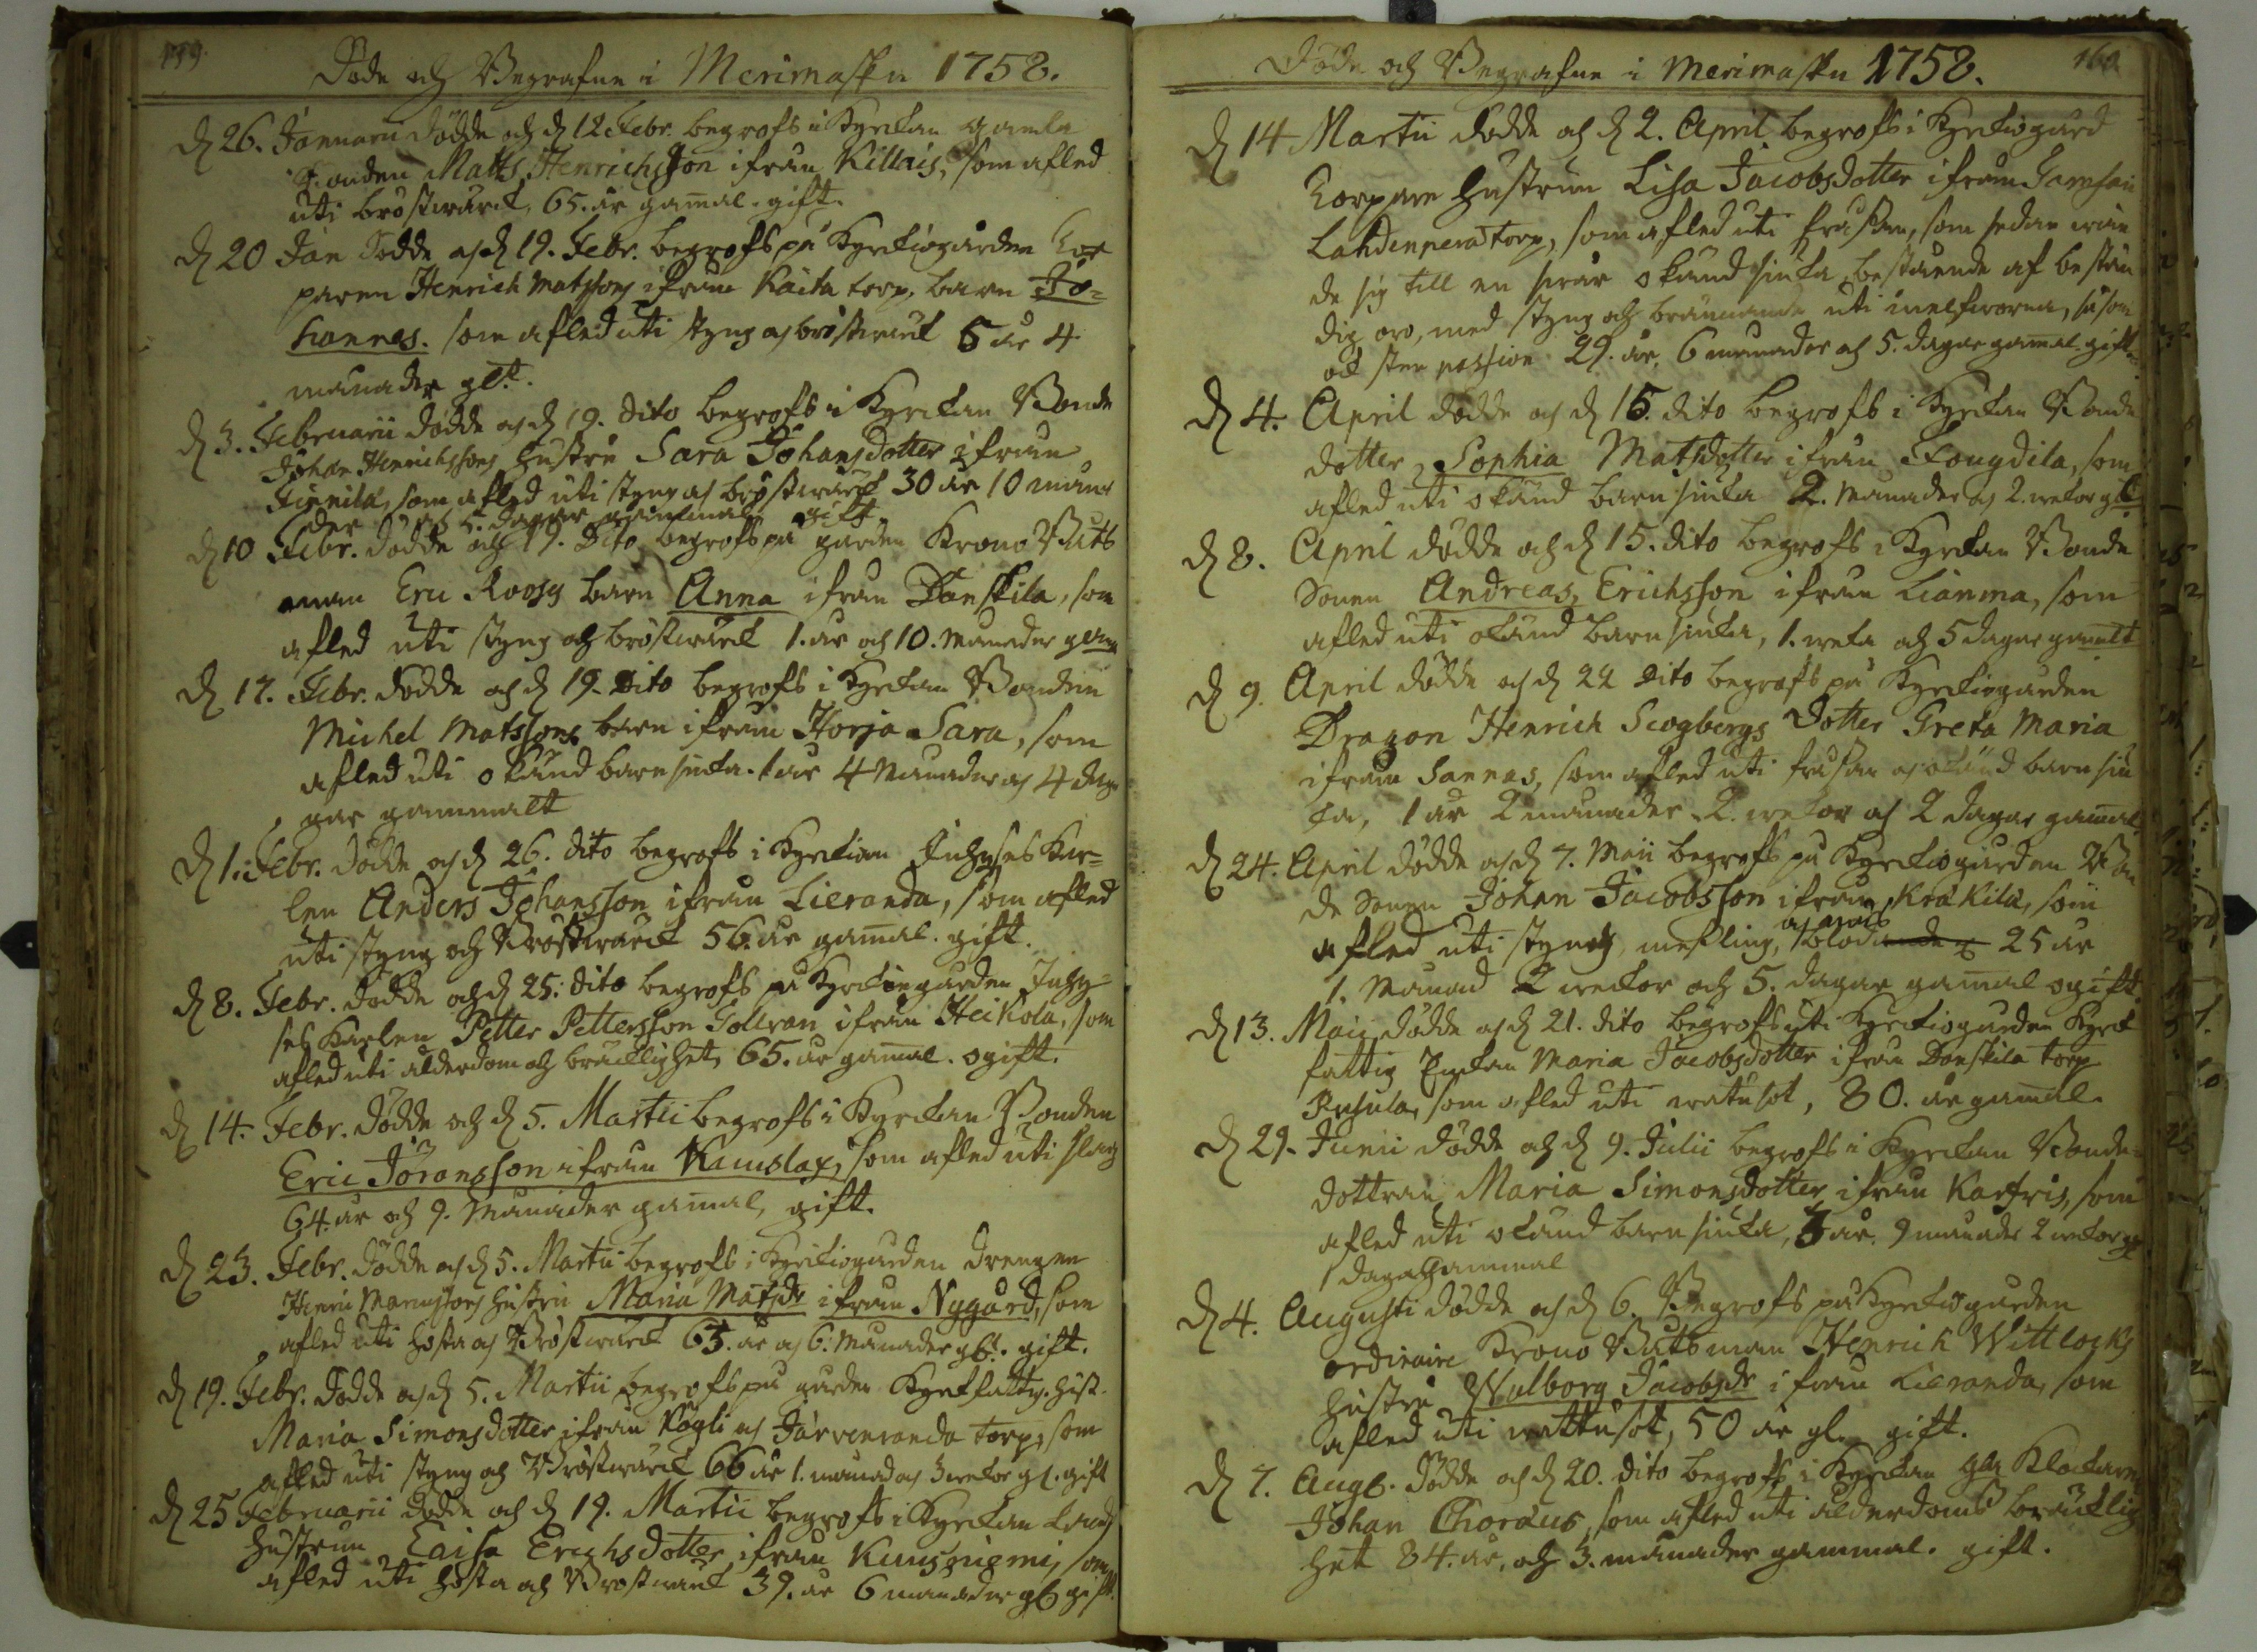 159.
Döde och Begrafne i Merimasku 1758.
d 26. Januarii dödde och d 12 Febr. begrofs i Kyrckan gamla
Bonden Matts Henrichsson ifrån Killais, som afled
uti bröstwärck, 65. år gamal. gift.
d 20 Jan dödde och d 19. Febr. begrofs på Kyrckiogården Tor
paren Henrich Matssons ifrån Kaita torp, barn Jo=
hannes. som afled uti styng och bröstwärck 5 år 4
månader glt.
d 3. Februarii dödde och d 19. dito begrofs i Kyrckan Bonde
Johan Henrichssons hustru Sara Johansdotter ifrån
Finnila, som afled uti styng och bröstwärck 30 år 10 måna
der och 5. dagar gammal gift
d 10 Febr. dödde och 19. Dito begrofs på gården Krono Båts
man Eric Roosz barn Anna ifrån Danskila, som
afled uti styng och bröstwärck 1. år och 10. Månader gam
d 17. Febr. dödde och d 19. Dito begrofs i Kyrckan Bonden
Michel Matssons barn ifrån Horja Sara, som
afled uti okänd barnsiuka. 1 år 4 Månader och 4 da
gar gammalt
d 1. Febr. dödde och d 26. dito begrofs i Kyrckian Inhyses Kar=
len Anders Johansson ifrån Lieranda, som afled
uti styng och Bröstwärck 56. år gamal. gift.
d 8. Febr. dödde och d 25. dito begrofs på Kyrckiogården Inhy=
ses Karlen Petter Pettersson Gollran, ifrån Heikola, som
afled uti alderdom och bräcklighet, 65. år gamal. ogift.
d 14. Febr. dödde och d 5. Martii begrofs i Kyrckan Bonden
Eric Jöransson ifrån Kamslax, som afled uti slag
64. år och 9. Månader gamal, gift.
d 23. Febr. dödde och d 5. Martii begrofs i Kyrckiogården drengen
Henric hustru Maria Matsdr ifrån Nygård, som
afled uti hosta och Bröstwärck 63. år och 6. Månader gl. gift.
d 19. Febr. dödde och d 5. Martii begrofs på gården Kyrkfattig. hust.
Maria Simonsdotter ifrån Kögli och Järvenranda torp, som
afled uti styng och Bröstwärck 66 år 1. månad och 3 wekor gl. gift
d 25 Februarii dödde och d 19. Martii begrofs i Kyrckan
hustrun Caisa Erichsdotter, ifrån Kuusniemi, som
afled uti hosta och Bröstwärck 39. år 6 månader gl gift.
160.
Döde och Begrafne i Merimasku 1758.
d 14 Martii dödde och d 2. April begrofs i Kyrckiogård
Torparen hustrun Lisa Jacobsdotter ifrån
Lahdenperä torp, som afled uti frossan, som sedan wän
de sig till en swår okänd siuka bestående af bestän
dig oro, med styng och brännande uti inelfworna, såsom
ock sten passion 29. år, 6 månader och 5. dagar gamal. gift.
d 4. April dödde och d 15. dito begrofs i Kyrckan Bonde
dotter Sophia Matsdotter ifrån Fougdila, som
afled uti okänd barnsiuka 2. Månader och 2. wekor gl
d 8. April dödde och d 15. dito begrofs i Kyrckan Bonde
Sonen Andreas Erichsson ifrån Lianma, som
afled uti okänd barnsiuka, 1. weka och 5 dagar gamalt
d 9. April dödde och d 22 Dito begrofs på Kyrckiogården
Dragon Henrich Scogbergs dotter Greta Maria
ifrån Sannas, som afled uti frossan och okänd barnsiu
ka, 1 år 2 månader 2. wekor och 2 dagar gamal.
d 24. April dödde och d 7. Maii begrofs på Kyrckiogården Bon
de Sonen Johan Jacobsson ifrån Kråkila, som
afled uti styng, messling, Blod 25 år
1. Månad 2 weckor och 5. dagar gamal ogift.
d 13. Maii dödde och d 21. dito begrofs uti Kyrckiogården Kyrck
fattig Enckan Maria Jacobsdotter ifrån Danskila torp
som afled uti watusot, 80. år gamal.
d 29. Junii dödde och d 9. Julii begrofs i Kyrckan Bonde=
dottran Maria Simonsdotter ifrån Karfris, som
afled uti okänd barnsiuka, 3 år, 9 månader 2 wekor och
1 dag gammal
d 4. Augusti dödde och d 6. Begrofs på Kyrckiogården
ordinaire Krono Båtsman Henrich Wittlocks
hustru Walborg Jacobsdr ifrån Lieranda, som
afled uti wattusot, 50 år gl. gift.
d 7. Augl. dödde och d 20. dito begrofs i Kyrckan gla Klockaren
Johan Choræus, som afled uti ålderdoms bräcklig
het 84. år, och 3. månader gammal. gift.